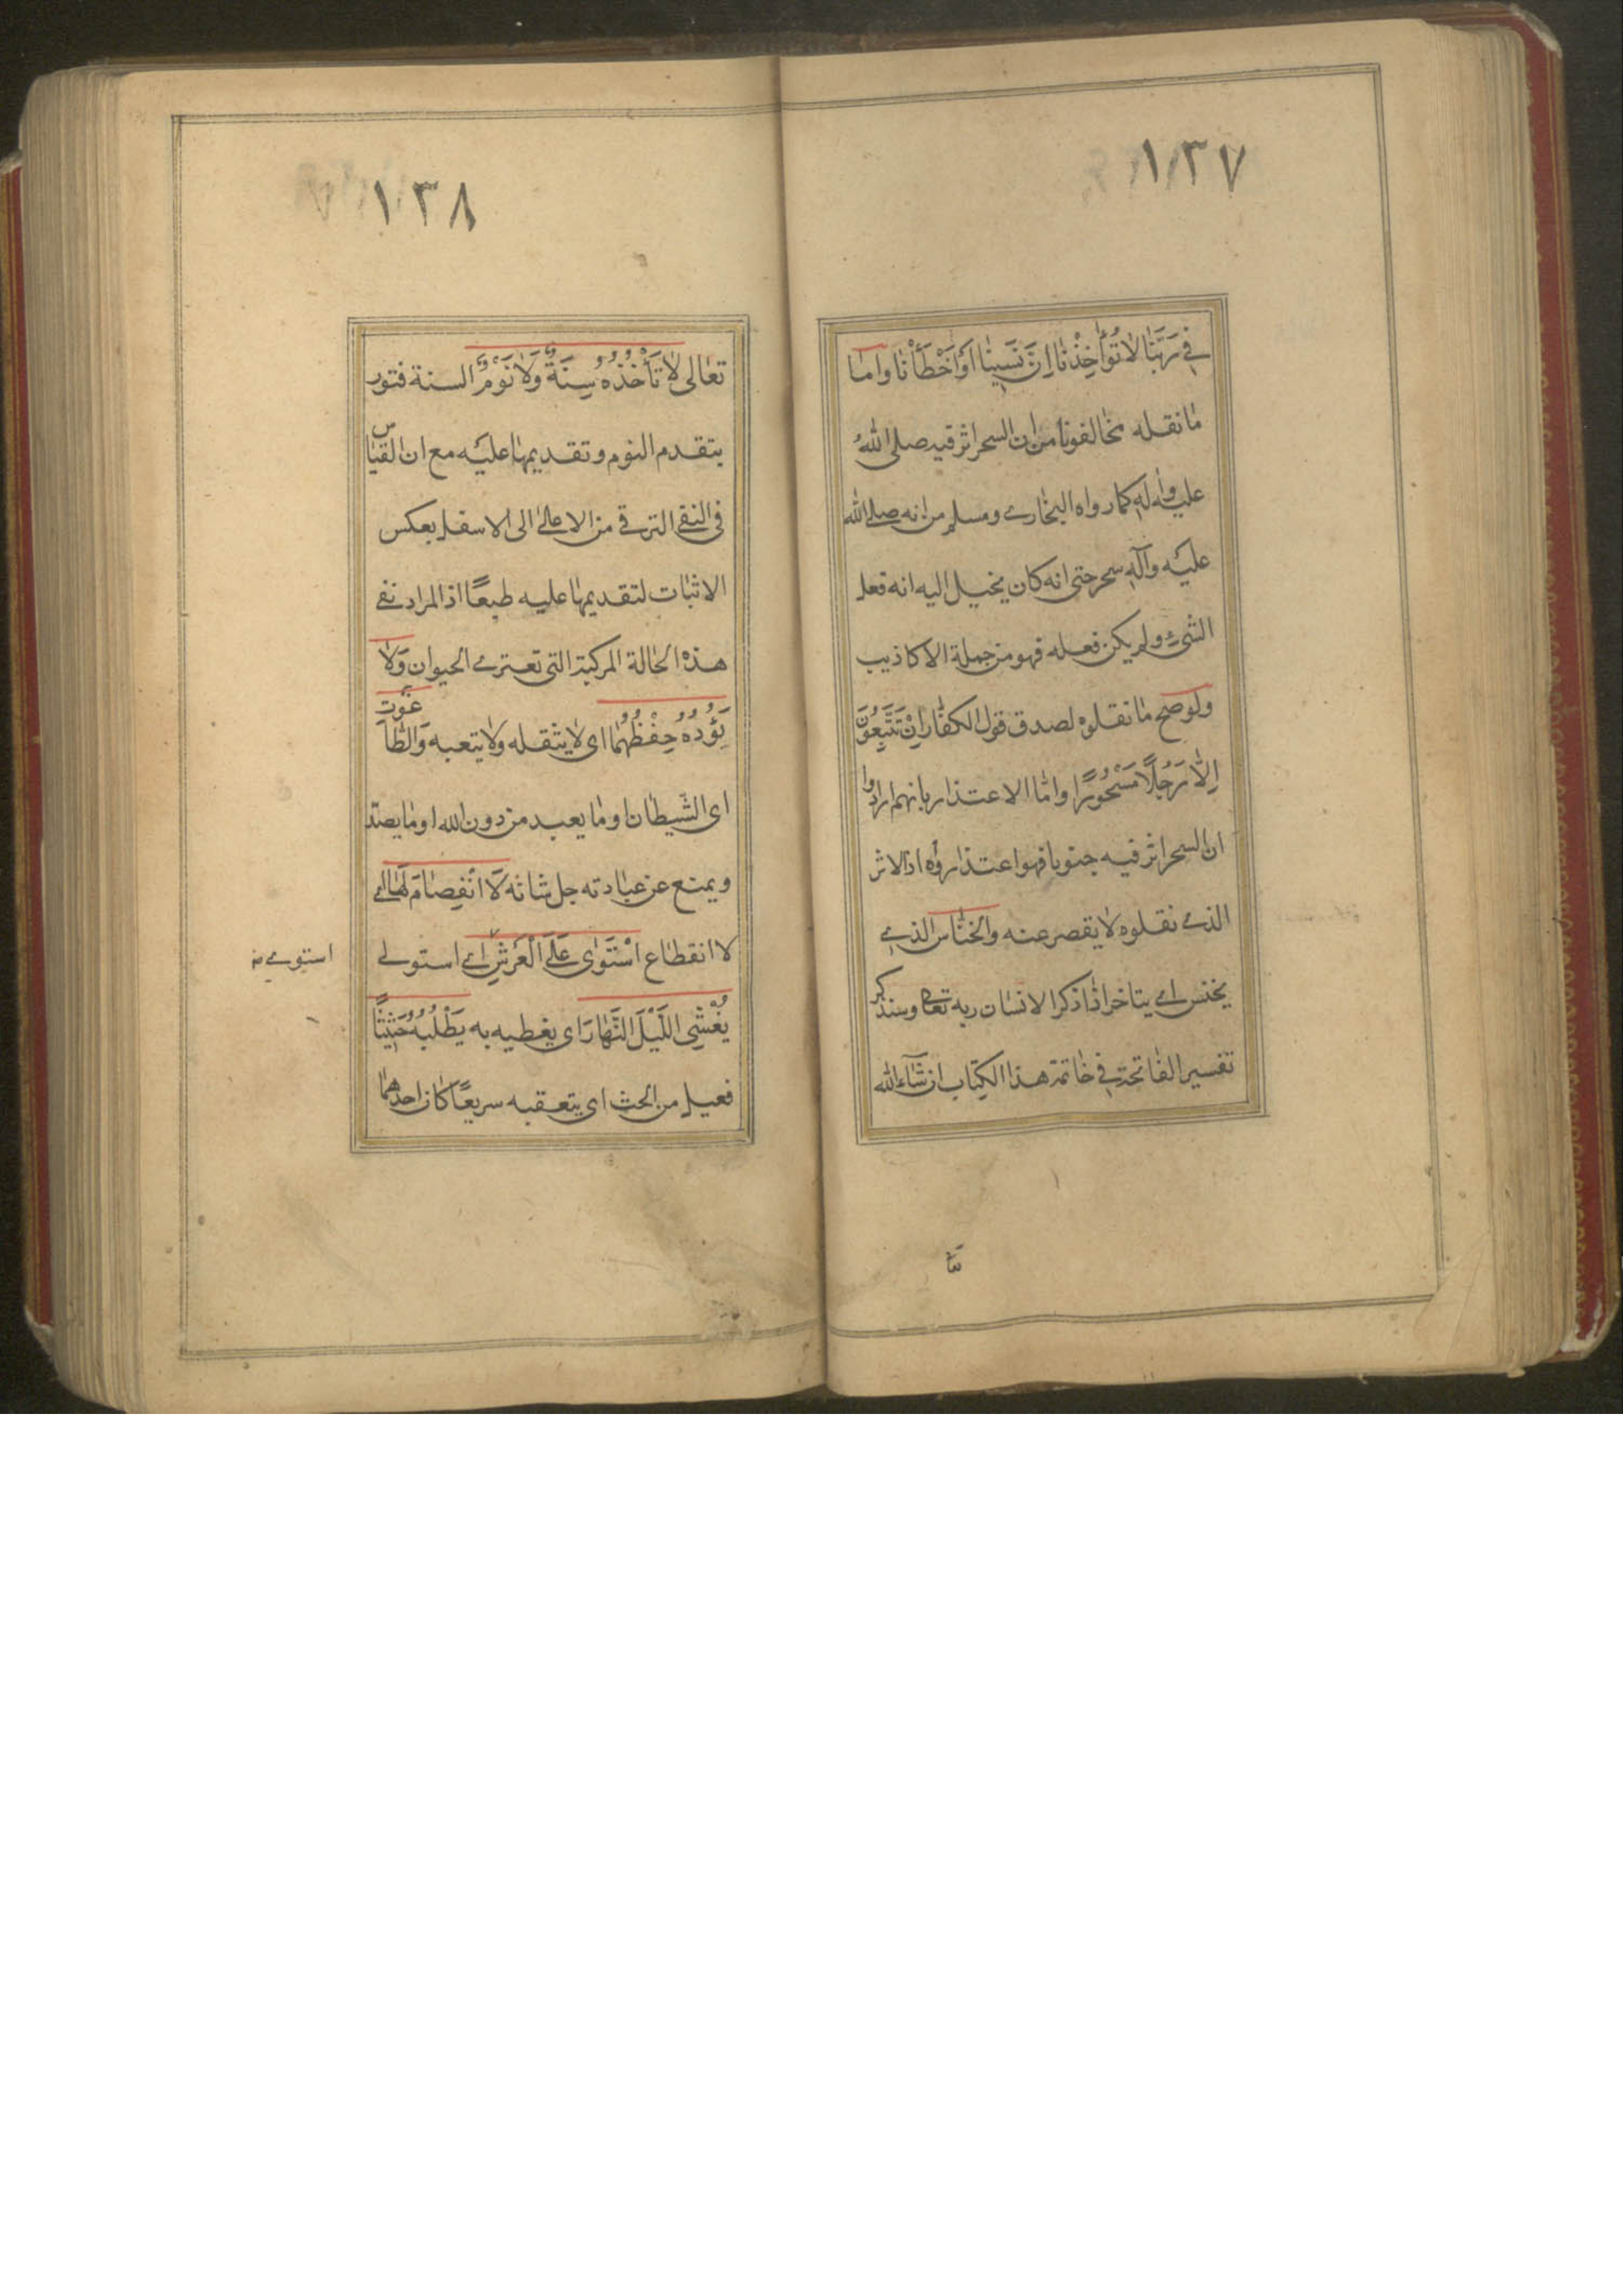 ١٣٧
في رَبَّنَا لَا تُؤَاخِذْنَا اِنْ نَسِينَا اَوْ اَخْطَأْنَا واما
ما نقله مخالفونا من ان السحر اثر فيه صلى اللهُ
عليه واله كما رواه البخاري ومسلم من انه صلى الله
عليه وآله سحر حتى انه كان يخيل اليه انه فعل
الشئ ولم يكن فعله فهو من جملة الاكاذيب
ولو صح ما نقلوه لصدق قول الكفار اِنْ تَتَّبِعُونَ
اِلَّا رَجُلًا مَسْحُورًا واما الاعتذار بانهم ارادوا
ان السحر اثر فيه جنونا فهو اعتذار وٰه اذ الاثر
الذي نقلوه لا يقصر عنه والخناس الذي
يخنس اي يتاخر اذا ذكر الانسان ربه تعالى وسنذكر
تفسير الفاتحة في خاتمة هذا الكتاب ان شاء الله
تعا
١٣٨
تعالى لَا تَأْخُذُهُ سِنَةٌ وَلَا نَوْمٌ السنة فتور
يتقدم النوم وتقديمها عليه مع ان القياس
في النفي الترقي من الاعلى الى الاسفل بعكس
الاثبات لتقديمها عليه طبعًا اذ المراد نفي
هذه الحالة المركبة التي تعتري الحيوان وَلَا
يَؤُدُهُ حِفْظُهُمَا اي لا يثقله ولا يتعبه وَالطَّاغوت
اي الشيطان او ما يعبد من دون الله او ما يصد
ويمنع عن عبادته جل شانه لَا انْفِصَامَ لَهَا اي
لا انقطاع اسْتَوٰى عَلَى الْعَرْشِ اي استولى
استوى منه
يُغْشِي اللَّيْلَ النَّهَارَ اي يغطيه به يَطْلُبُهُ حَثِيثًا
فعيل من الحث اي يتعقبه سريعًا كان احدهما